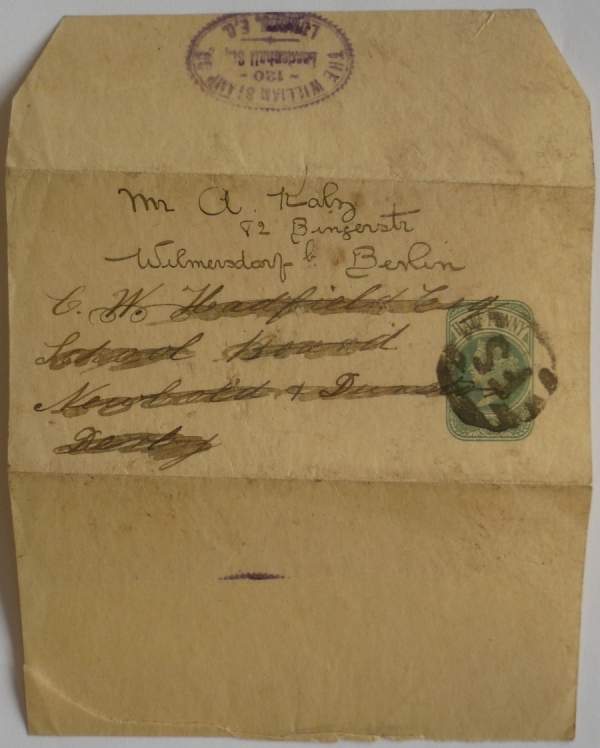 THE WILLIAM STAMP
120
Leadenhall St.,
LONDON, E.C.
Mr A. Katz
82 Bingerstr
Wilmersdorf b. Berlin
C. W. Hadfield Esq
School Board
Newbold & Dunston
Derby
HALF PENNY